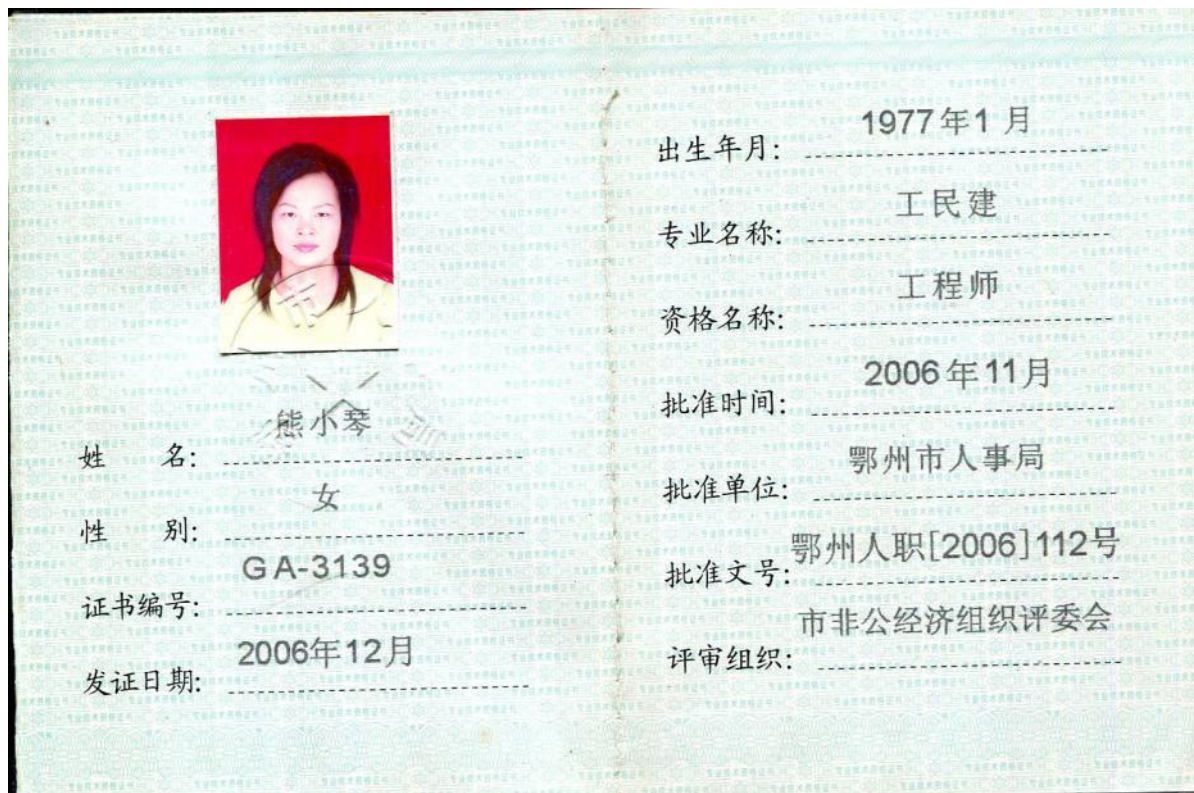 姓 名: 熊小琴
性 别: 女
证书编号: GA-3139
发证日期: 2006年12月
出生年月: 1977年1月
专业名称: 工民建
资格名称: 工程师
批准时间: 2006年11月
批准单位: 鄂州市人事局
批准文号: 鄂州人职[2006]112号
评审组织: 市非公经济组织评委会